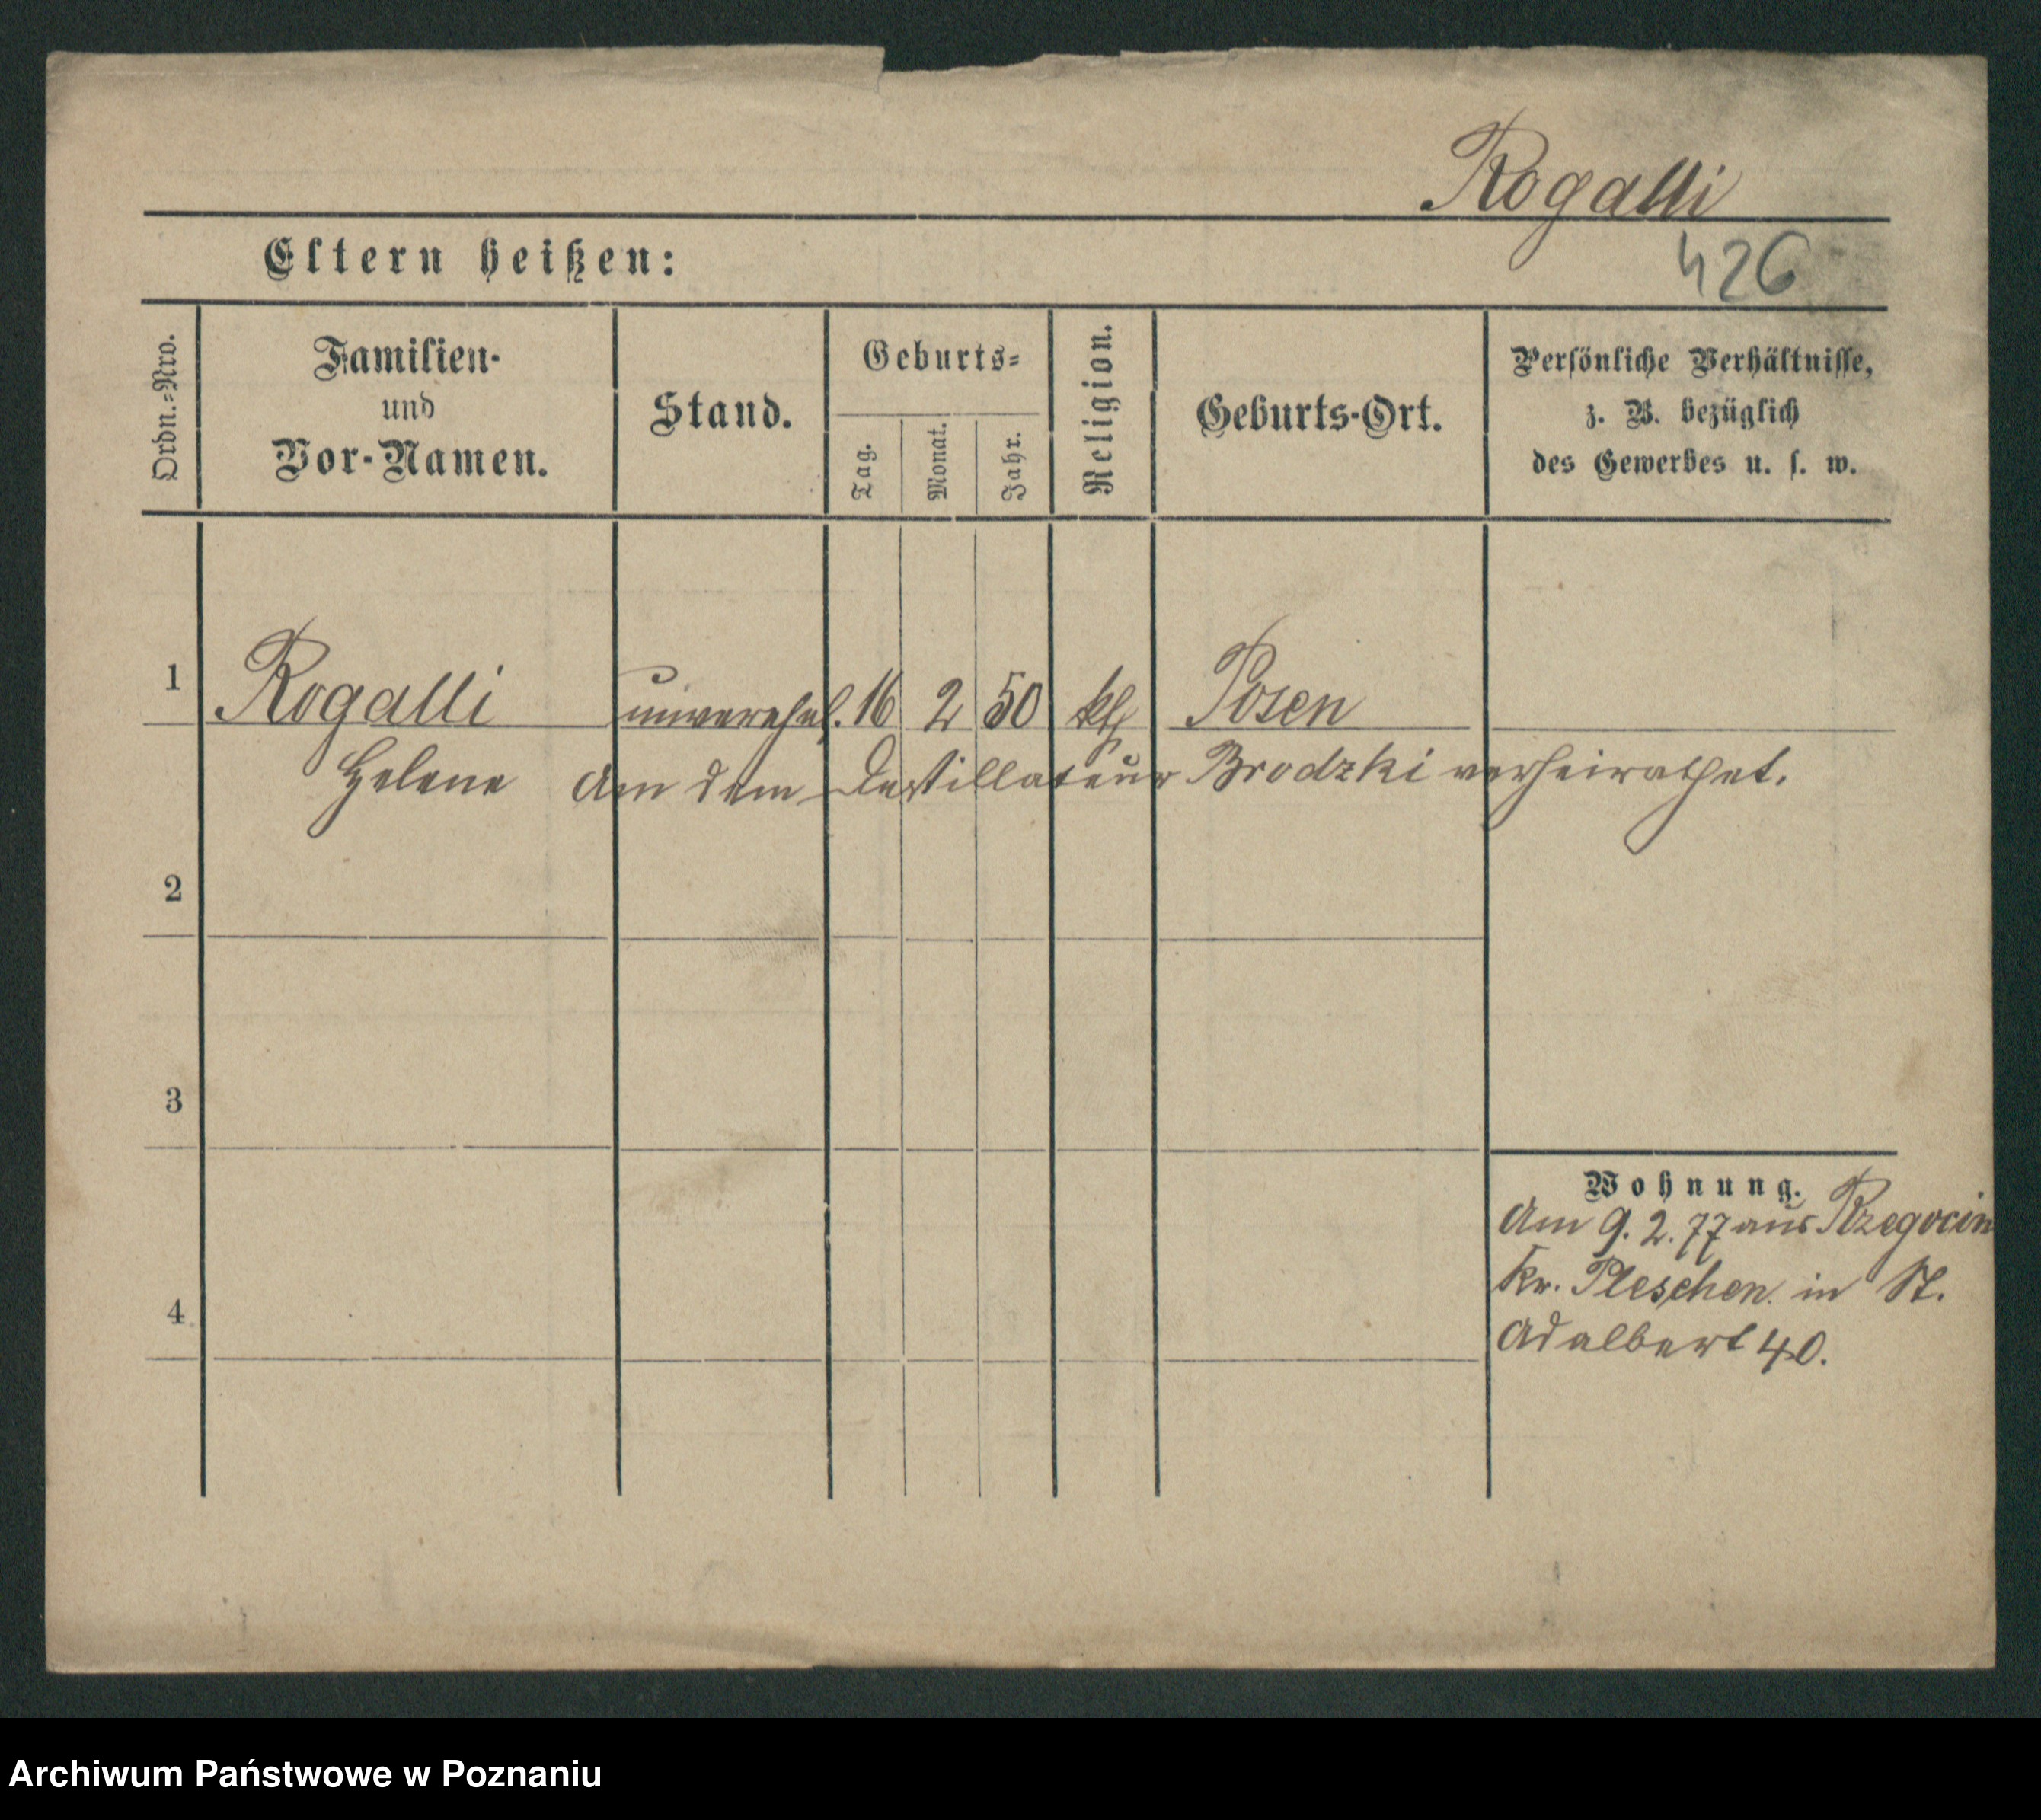 Rogalli
Eltern heißen:
426
Ordn.-Nro.
Familien-
und
Vor-Namen.
Stand.
Geburts-
Tag.
Monat.
Jahr.
Religion.
Geburts-Ort.
Persönliche Verhältnisse,
z. B. bezüglich
des Gewerbes u. s. w.
1 Rogalli unverehel. 16 2 50 kth Posen
Helene An dem Destillateur Brodzki verheirathet.
2
3
4
Wohnung.
Am 9. 2. 77 aus Rzegocin
Kr. Pleschen in St.
Adalbert 40.
Archiwum Państwowe w Poznaniu